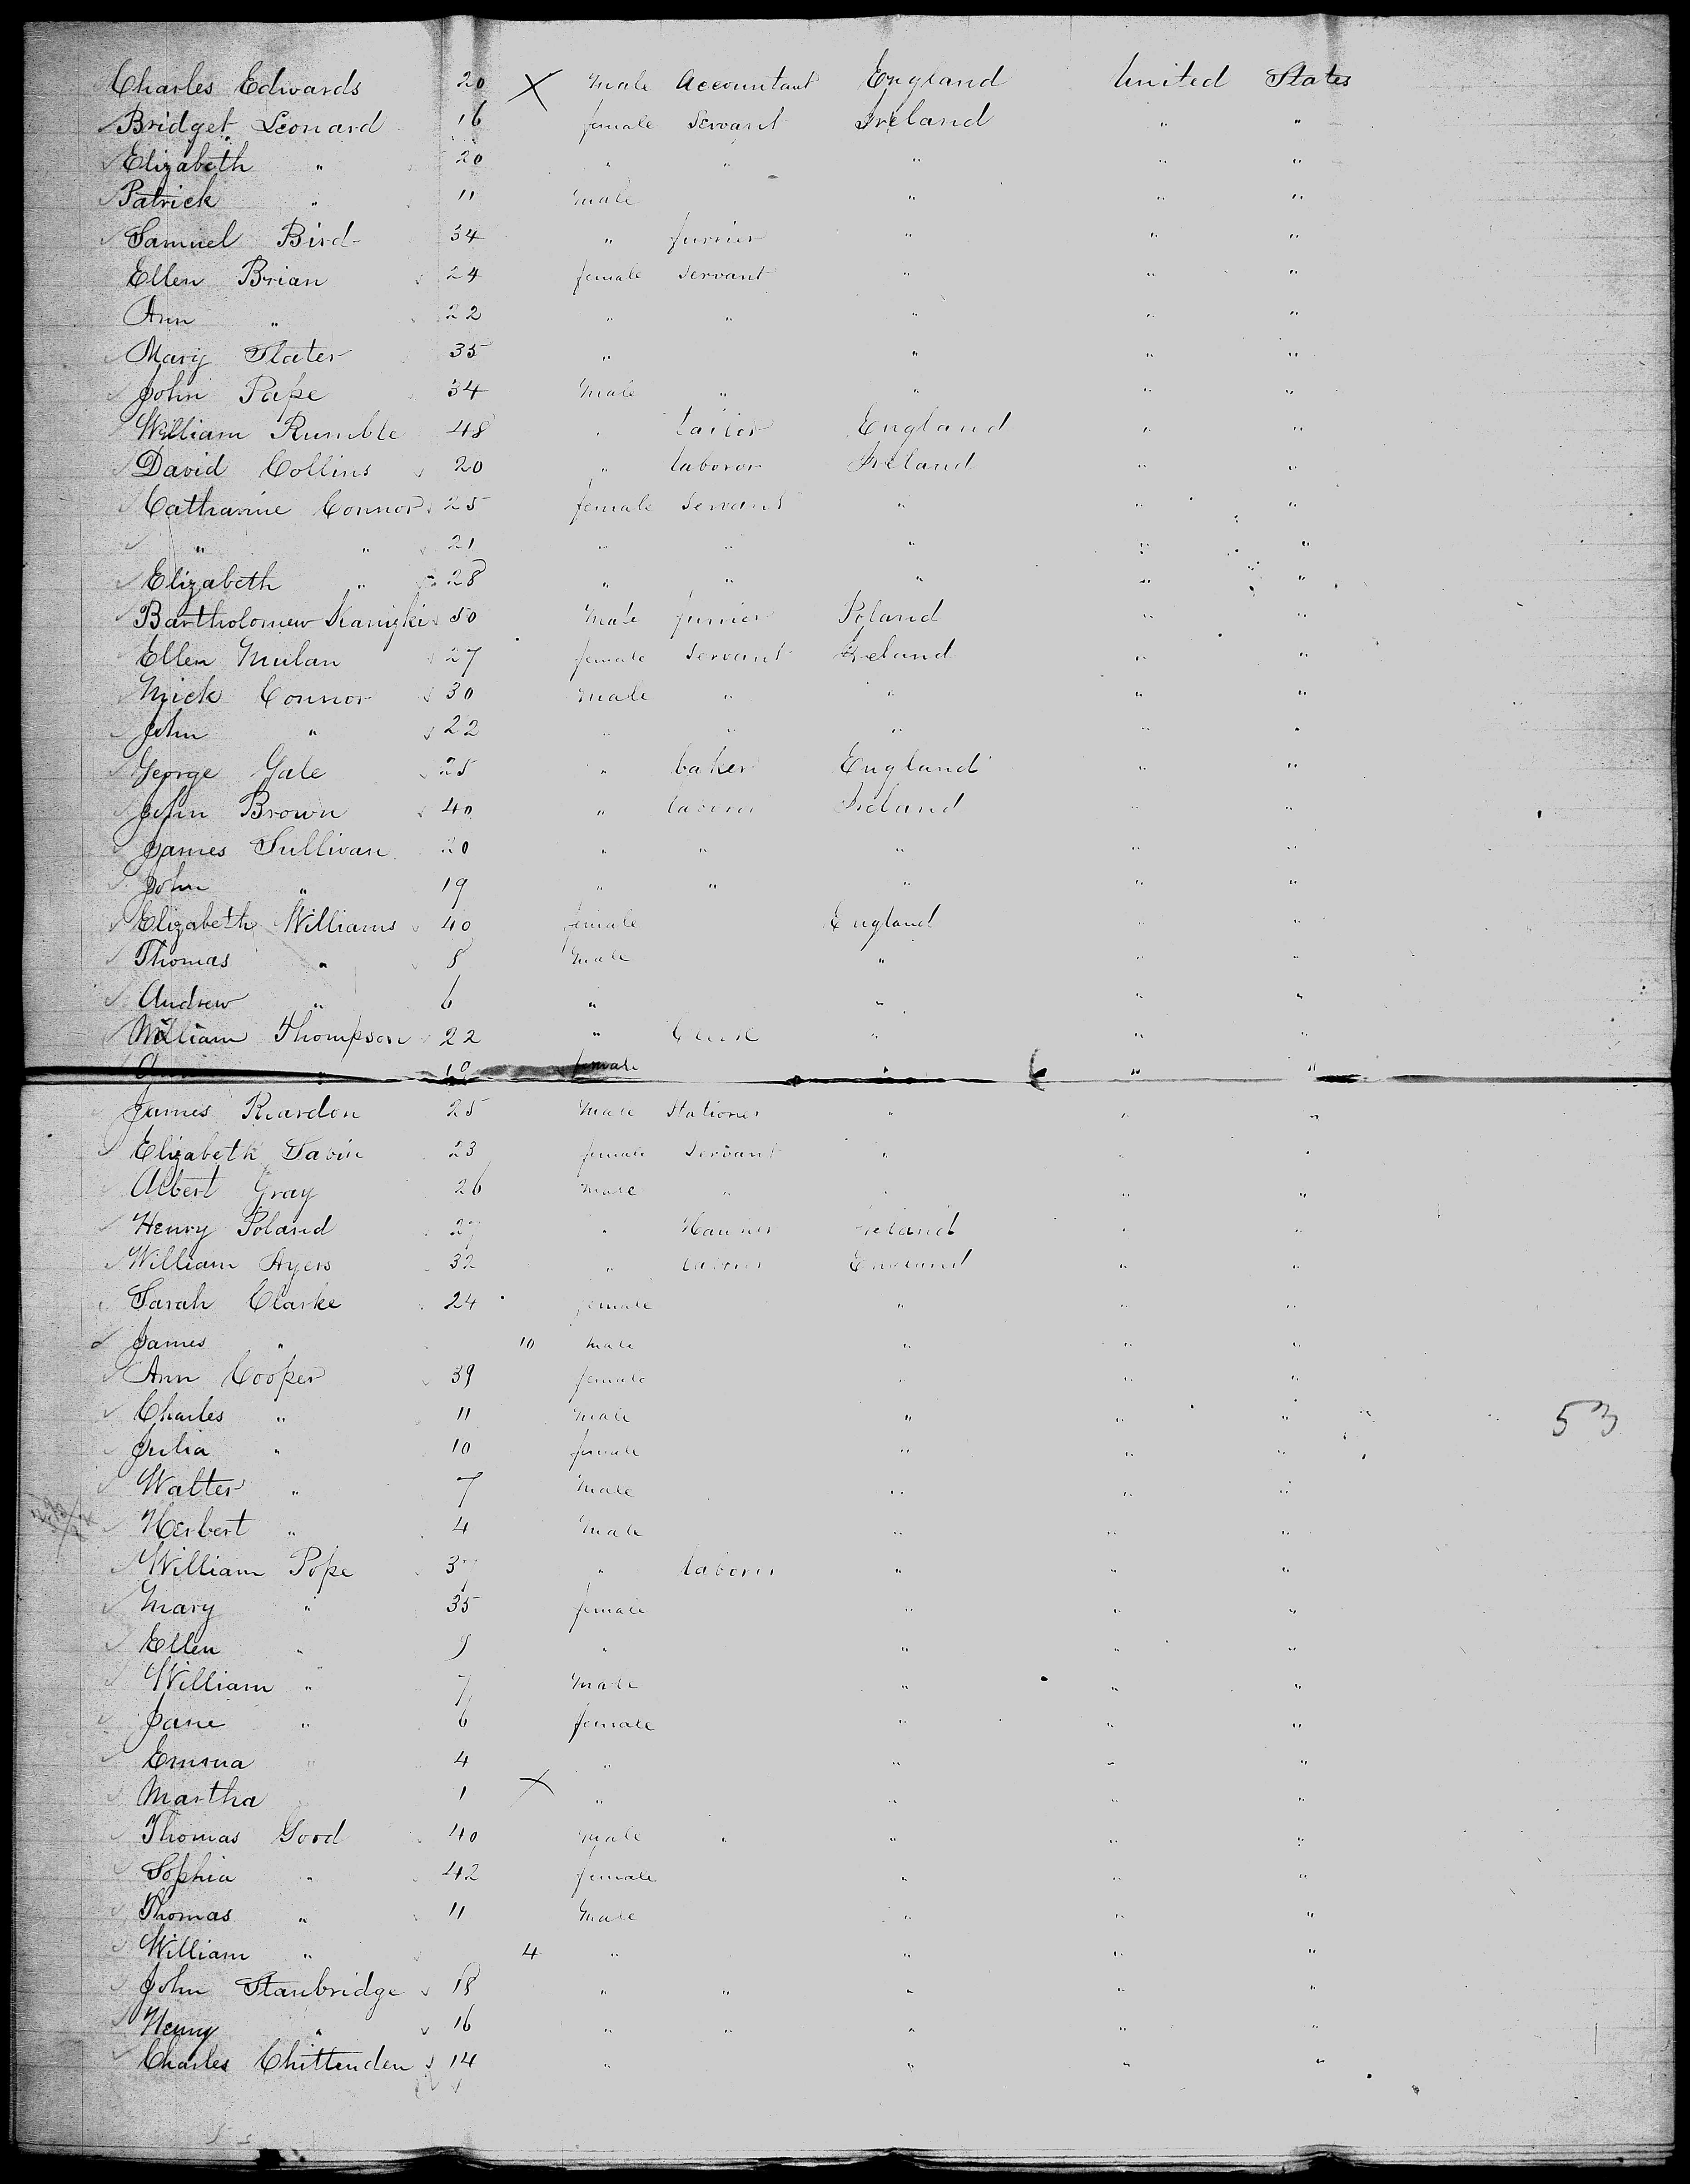 Charles Edwards 20 X Male Accountant England United States
Bridget Leonard 16 female Servant Ireland " "
Elizabeth " 20 " " " " "
Patrick " 11 Male " " "
Samuel Bird 34 " furrier " " "
Ellen Brian 24 female Servant " " "
Ann " 22 " " " " "
Mary Slater 35 " " " "
John Pape 34 Male " " " "
William Rumble 48 " tailor England " "
David Collins 20 " laboror Ireland " "
Catharine Connor 25 female Servant " " "
" " 21 " " " " "
Elizabeth " 28 " " " " "
Bartholomew 50 Male furrier Poland " "
Ellen Mulan 27 female Servant Ireland " "
Mick Connor 30 Male " " " "
John " 22 " " " " "
George Gale 25 " baker England " "
John Brown 40 " laborer Ireland " "
James Sullivan 20 " " " " "
John " 19 " " " " "
Elizabeth Williams 40 female England " "
Thomas " 8 Male " " "
Andrew " 6 " " " "
William Thompson 22 " Clerk " " "
" 19 female " " "
James Reardon 25 Male Stationer " " "
Elizabeth 23 female Servant " " "
Albert Gray 26 Male " " " "
Henry Poland 27 " Ireland " "
William Ayers 32 " laborer England " "
Sarah Clarke 24 female " " "
James " 10 Male " " "
Ann Cooper 39 female " " "
Charles " 11 Male " " " 53
Julia " 10 female " " "
Walter " 7 Male " " "
Herbert " 4 Male " " "
William Pope 37 " laborer " " "
Mary " 35 female " " "
Ellen " 9 " " " "
William " 7 Male " " "
Jane " 6 female " " "
Emma " 4 " " " "
Martha 1 X " " " "
Thomas Good 40 Male " " " "
Sophia " 42 female " " "
Thomas " 11 Male " " "
William " 4 " " " "
John Stanbridge 18 " " " " "
Henry " 16 " " " " "
Charles Chittenden 14 " " " "